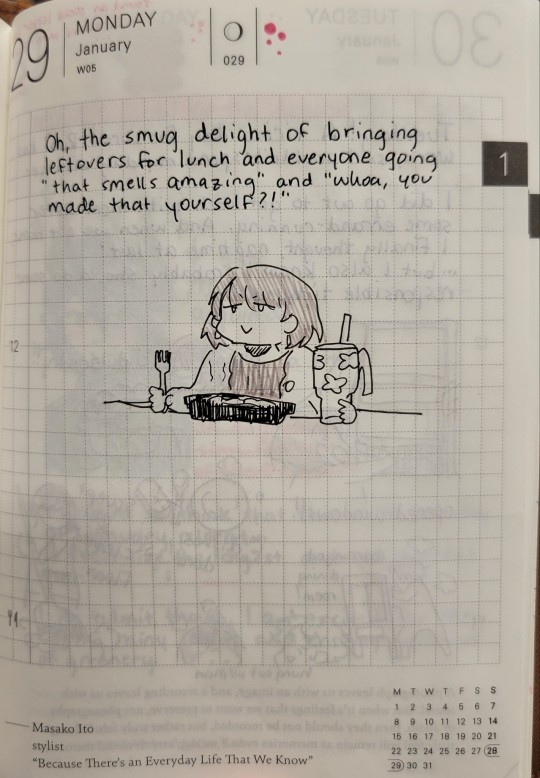 29
MONDAY
January
W05
029
Oh, the smug delight of bringing
leftovers for lunch and everyone going
"that smells amazing" and "whoa, you
made that yourself?!"
1
12
M T W T F S S
1 2 3 4 5 6 7
8 9 10 11 12 13 14
15 16 17 18 19 20 21
22 23 24 25 26 27 28
29 30 31
Masako Ito
stylist
"Because There's an Everyday Life That We Know"
30
TUESDAY
January